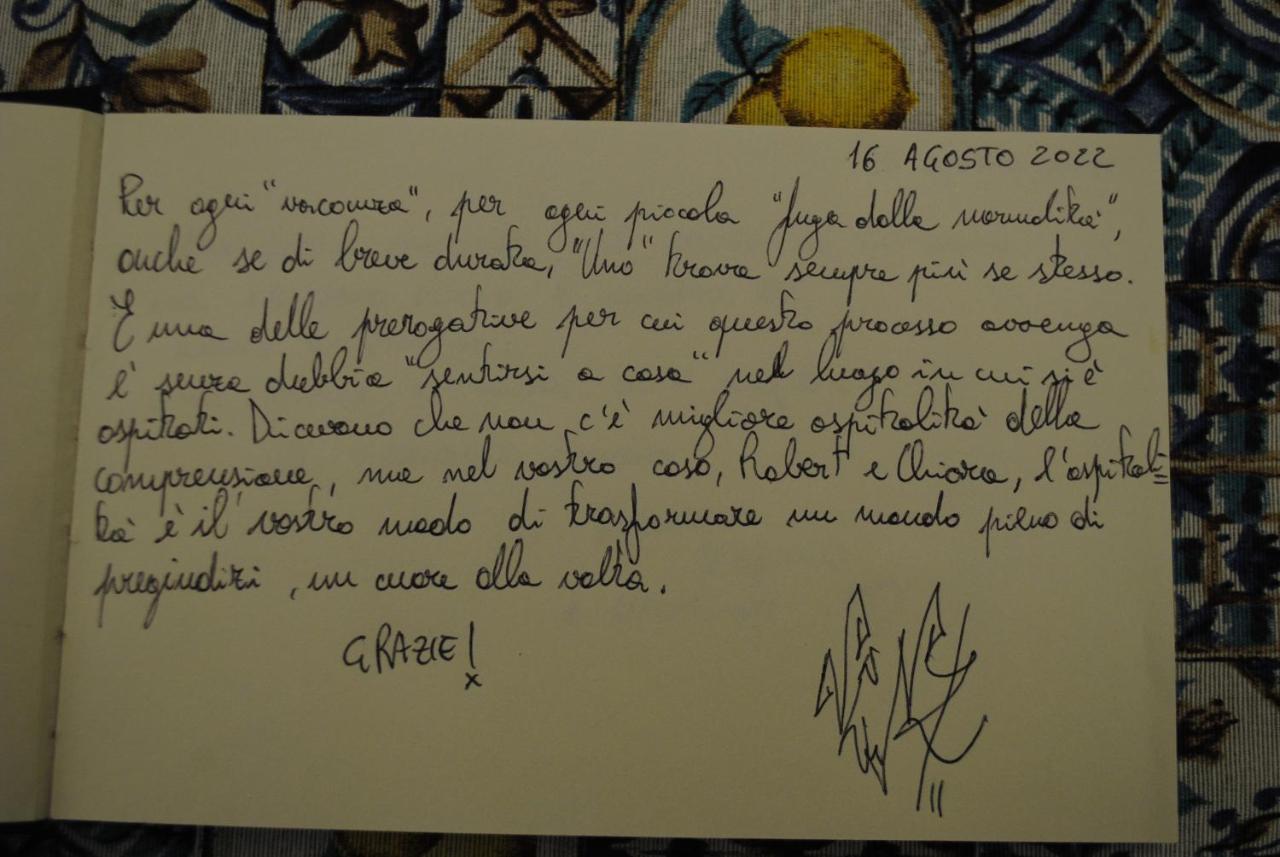 16 AGOSTO 2022
Per ogni "vacanza", per ogni piccola "fuga dalla normalità",
anche se di breve durata, "Uno" trova sempre più se stesso.
È una delle prerogative per cui questo processo avvenga
è senza dubbio "sentirsi a casa" nel luogo in cui si è
ospitati. Dicevano che non c'è migliore ospitalità della
comprensione, ma nel vostro caso, Robert e Chiara, l'ospitali=
tà è il vostro modo di trasformare un mondo pieno di
pregiudizi, un cuore alla volta.
GRAZIE!
x